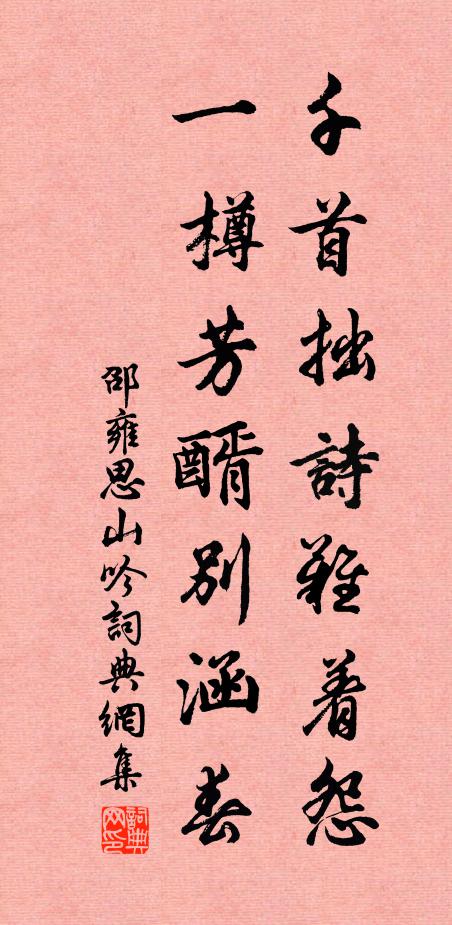 千首拙詩難着怨
一樽芳醑別涵春
邵雍思山吟詞典網集
詞典网印